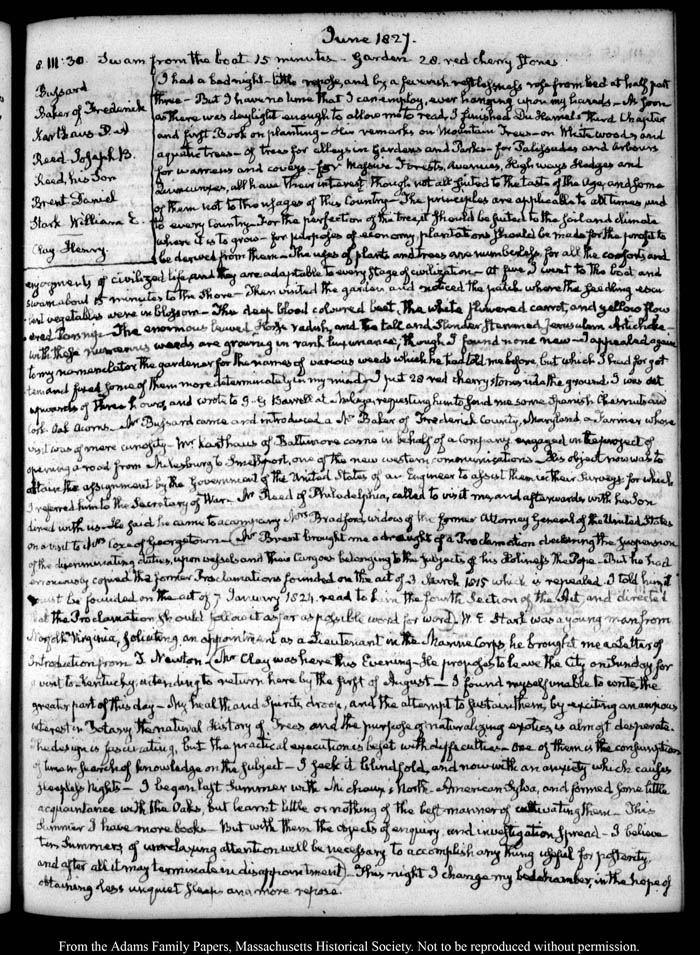 June 1827.
8. III:30. Swam from the boat 15 minutes. Garden 28 red cherry stones.
Bussard
Baker of Frederick
Karthaus P. A
Reed Joseph B.
Reed, his Son
Brent Daniel
Stark William E.
Clay Henry.
I had a bad night—little repose, and by a feverish restlessness rose from bed at half past
three—But I have no time that I can employ, ever hanging upon my hands—As soon
as there was daylight enough to allow me to read, I finished Du Hamel's third Chapter
and first Book on planting—Her remarks on Mountain Trees—on White woods, and
aquatic trees—of trees for alleys in Gardens and Parks—for Palissades and Arbours
for warrens and coveys—for Massive Forests, Avenues, Highways Hedges and
all have their interest though not all suited to the taste of the Age, and some
of them not to the usages of this Country—The principles are applicable to all times and
to every Country—For the perfection of the tree, it should be suited to the soil and climate
where it is to grow—for purposes of economy, plantations should be made for the profit to
be derived from them—The uses of plants and trees are numberless, for all the comforts and
enjoyments of civilized life, and they are adaptable to every stage of civilization—At five I went to the boat and
swam about 15 minutes to the Shore—Then visited the garden and noticed the patch where the seeding escu
lent vegetables were in blossom—The deep blood coloured beet, the white flowered carrot, and yellow flow
ered Parsnip—The enormous leaved Horse radish, and the tall and slender stemmed Jerusalem Artichoke—
with these numerous weeds are growing in rank luxuriance, though I found none new—I appealed again
to my nomenclator the gardener for the names of various weeds which he had told me before, but which I had forgot
ten and fixed some of them more determinately in my mind) I put 28 red cherry stones into the ground. I was out
upwards of three hours, and wrote to G. G Barrell at Malaga, requesting him to send me some Spanish Chesnuts and
Cork Oak Acorns. Mr Bussard came and introduced a Mr Baker of Frederick County, Maryland a Farmer whose
visit was of mere curiosity—Mr Karthaus of Baltimore came in behalf of a Company engaged in the project of
opening a road from Milesburg to Smethport, one of the new western communications—His object now was to
obtain the assignment by the Government of the United States of an Engineer to assist them in their Surveys: for which
I referred him to the Secretary of War. Mr Reed of Philadelphia, called to visit me, and afterwards with his Son
dined with us—He said he came to accompany Mrs Bradford, widow of the former Attorney General of the United States
on a visit to Mrs Coxe of Georgetown—(Mr Brent brought me a draught of a Proclamation declaring the suspension
of the discriminating duties, upon vessels and their Cargoes belonging to the subjects of his Holiness the Pope—But he had
erroneously copied the former Proclamations founded on the act of 3 March 1815 which is repealed. I told him it
must be founded on the act of 7 January 1824, read to him the fourth Section of the Act, and directed
that the Proclamation should follow it as far as possible word for word). W. E. Stark was a young man from
Norfolk Virginia, soliciting an appointment as a Lieutenant in the Marine Corps, he brought me a Letter of
Introduction from T. Newton—(Mr Clay was here this Evening—He proposes to leave the City on Sunday for
a visit to Kentucky, intending to return here by the first of August—I found myself unable to write the
greater part of this day—My health and Spirits droop, and the attempt to sustain them, by exciting an anxious
interest in Botany the natural History of Trees and the purpose of naturalizing exotics is almost desperate.
The design is fascinating, but the practical execution is beset with difficulties—One of them is the consumption
of time in search of knowledge on the subject—I seek it blindfold, and now with an anxiety which causes
sleepless Nights—I began last Summer with Michaux's North-American Sylva, and formed some little
acquaintance with the Oaks, but learnt little or nothing of the best manner of cultivating them—This
Summer I have more books—But with them the objects of enquiry, and investigation spread—I believe
ten Summers of unrelaxing attention will be necessary to accomplish any thing useful for posterity
and after all it may terminate in disappointment)—This night I change my bedchamber, in the hope of
obtaining less unquiet sleep and more repose.
From the Adams Family Papers, Massachusetts Historical Society. Not to be reproduced without permission.